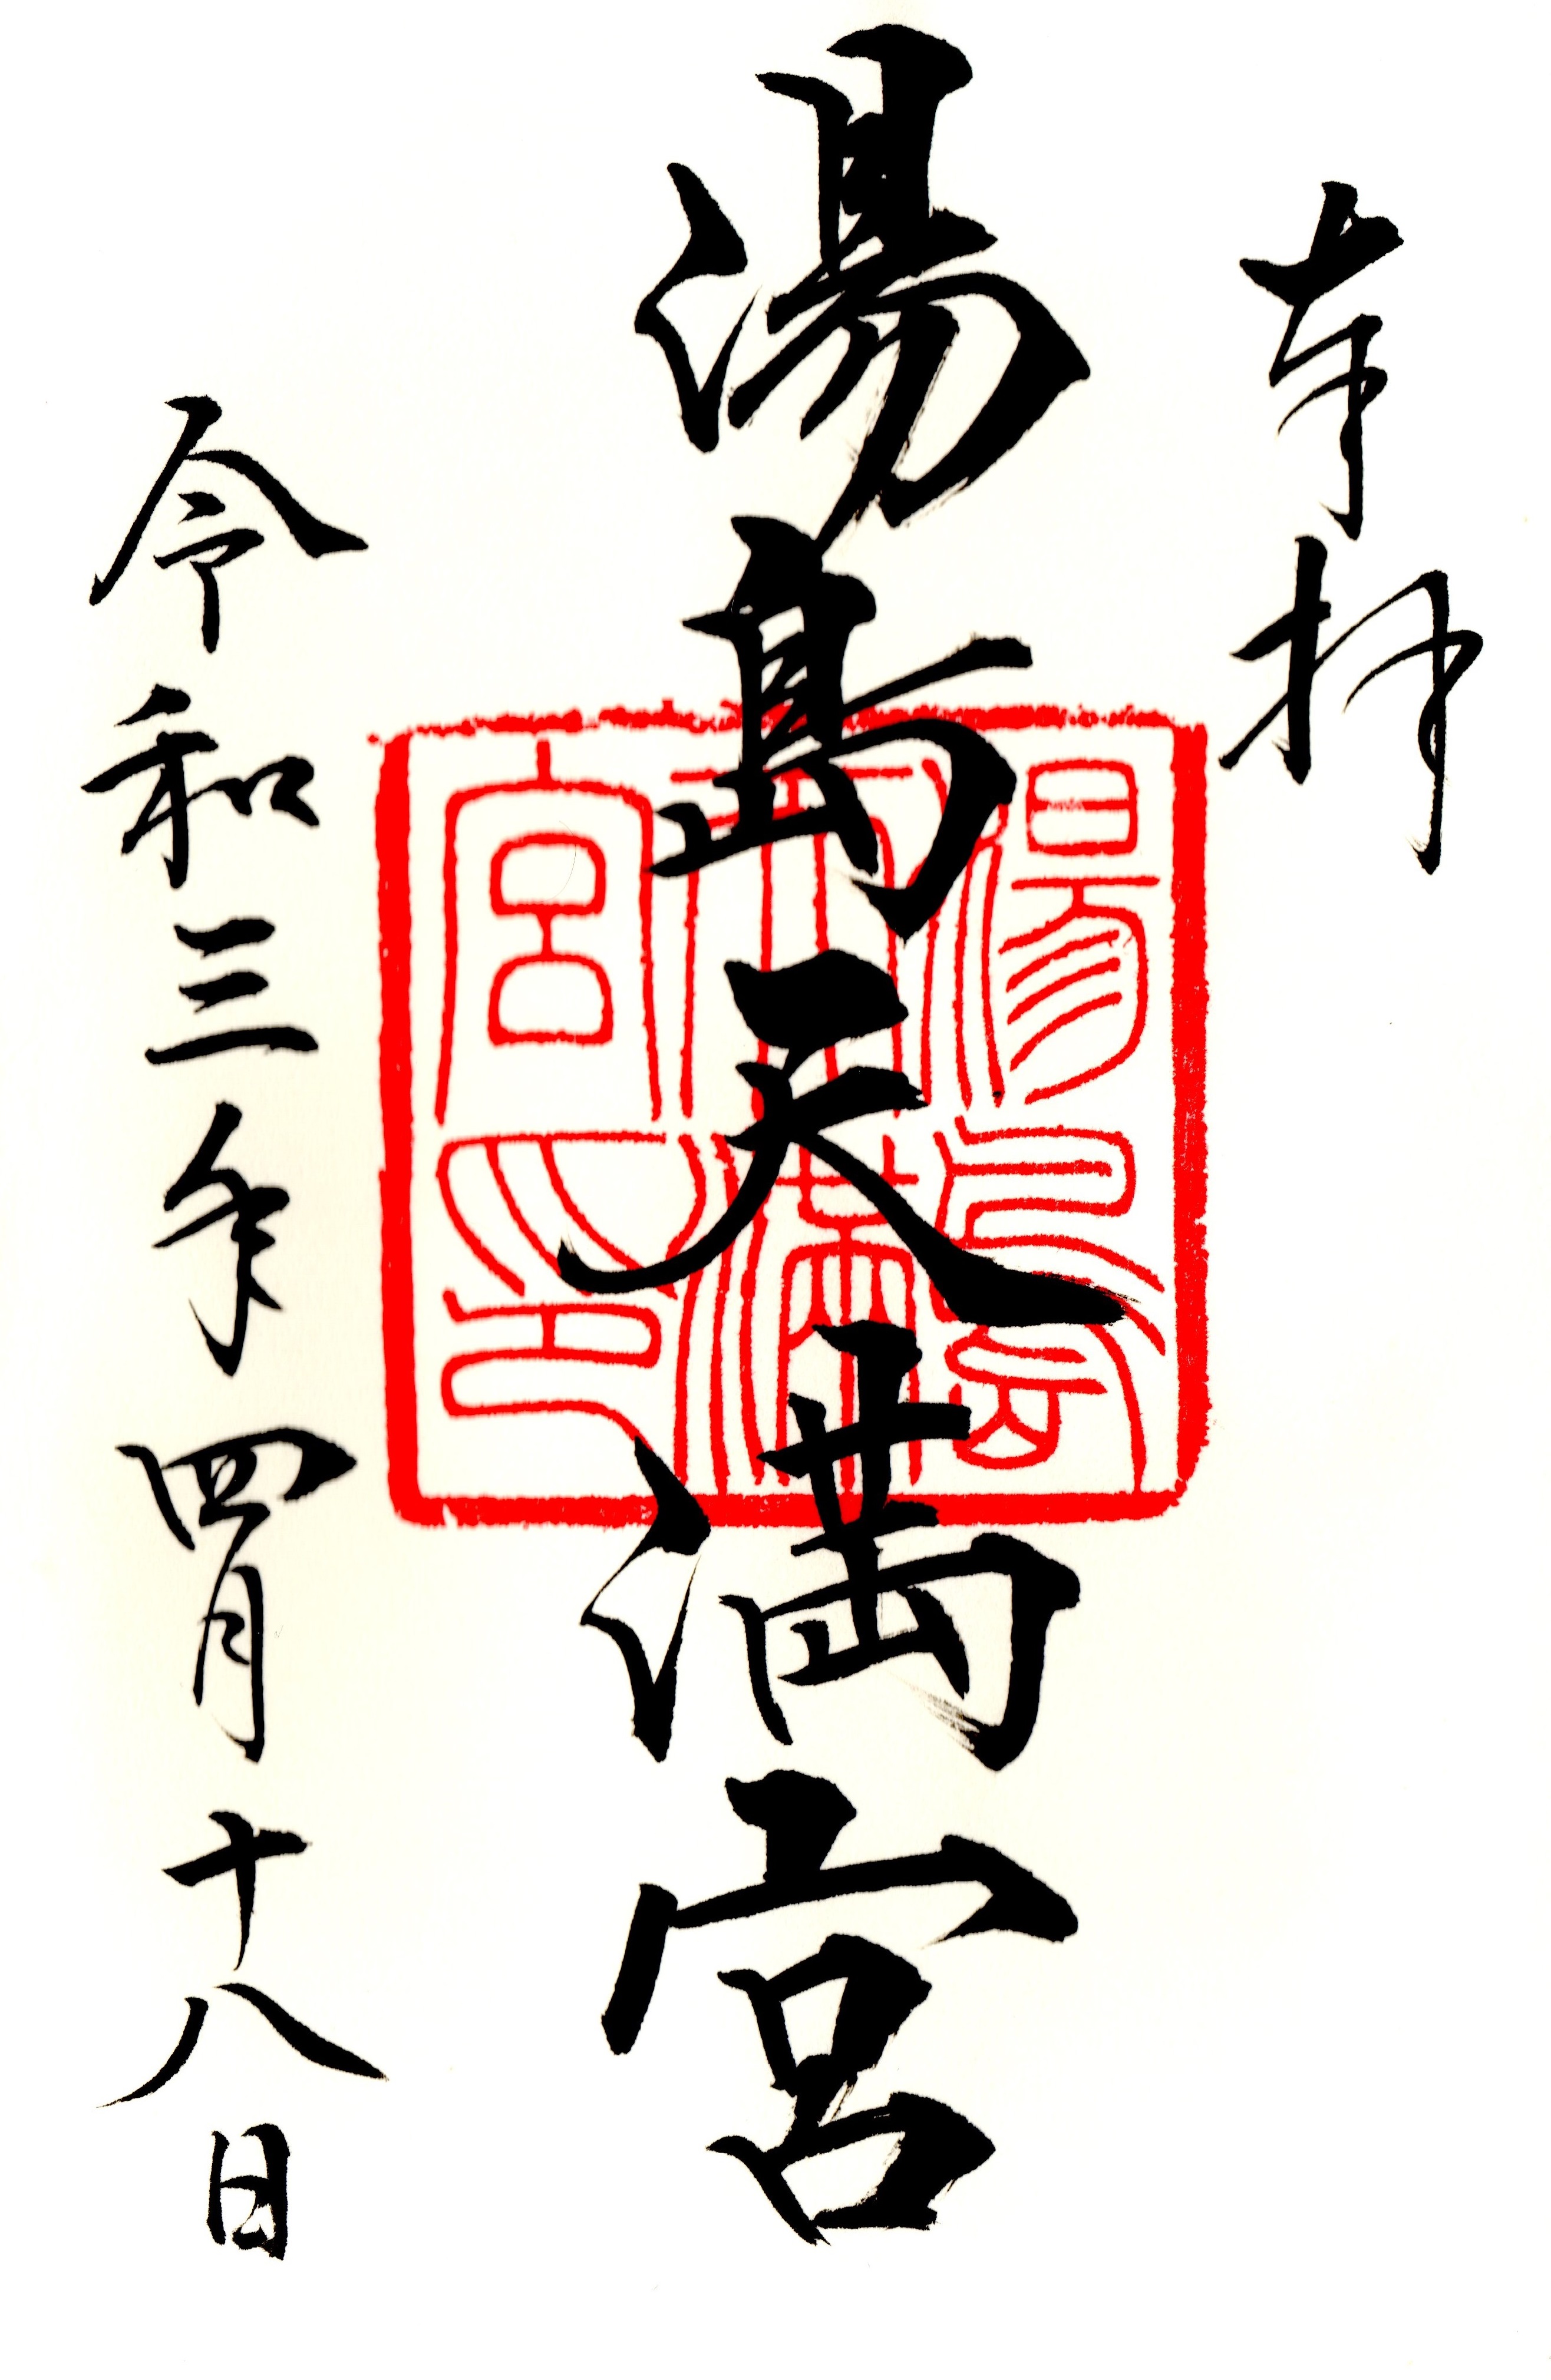 奉拝
湯島天満宮
湯島天満宮之印
令和三年四月十八日